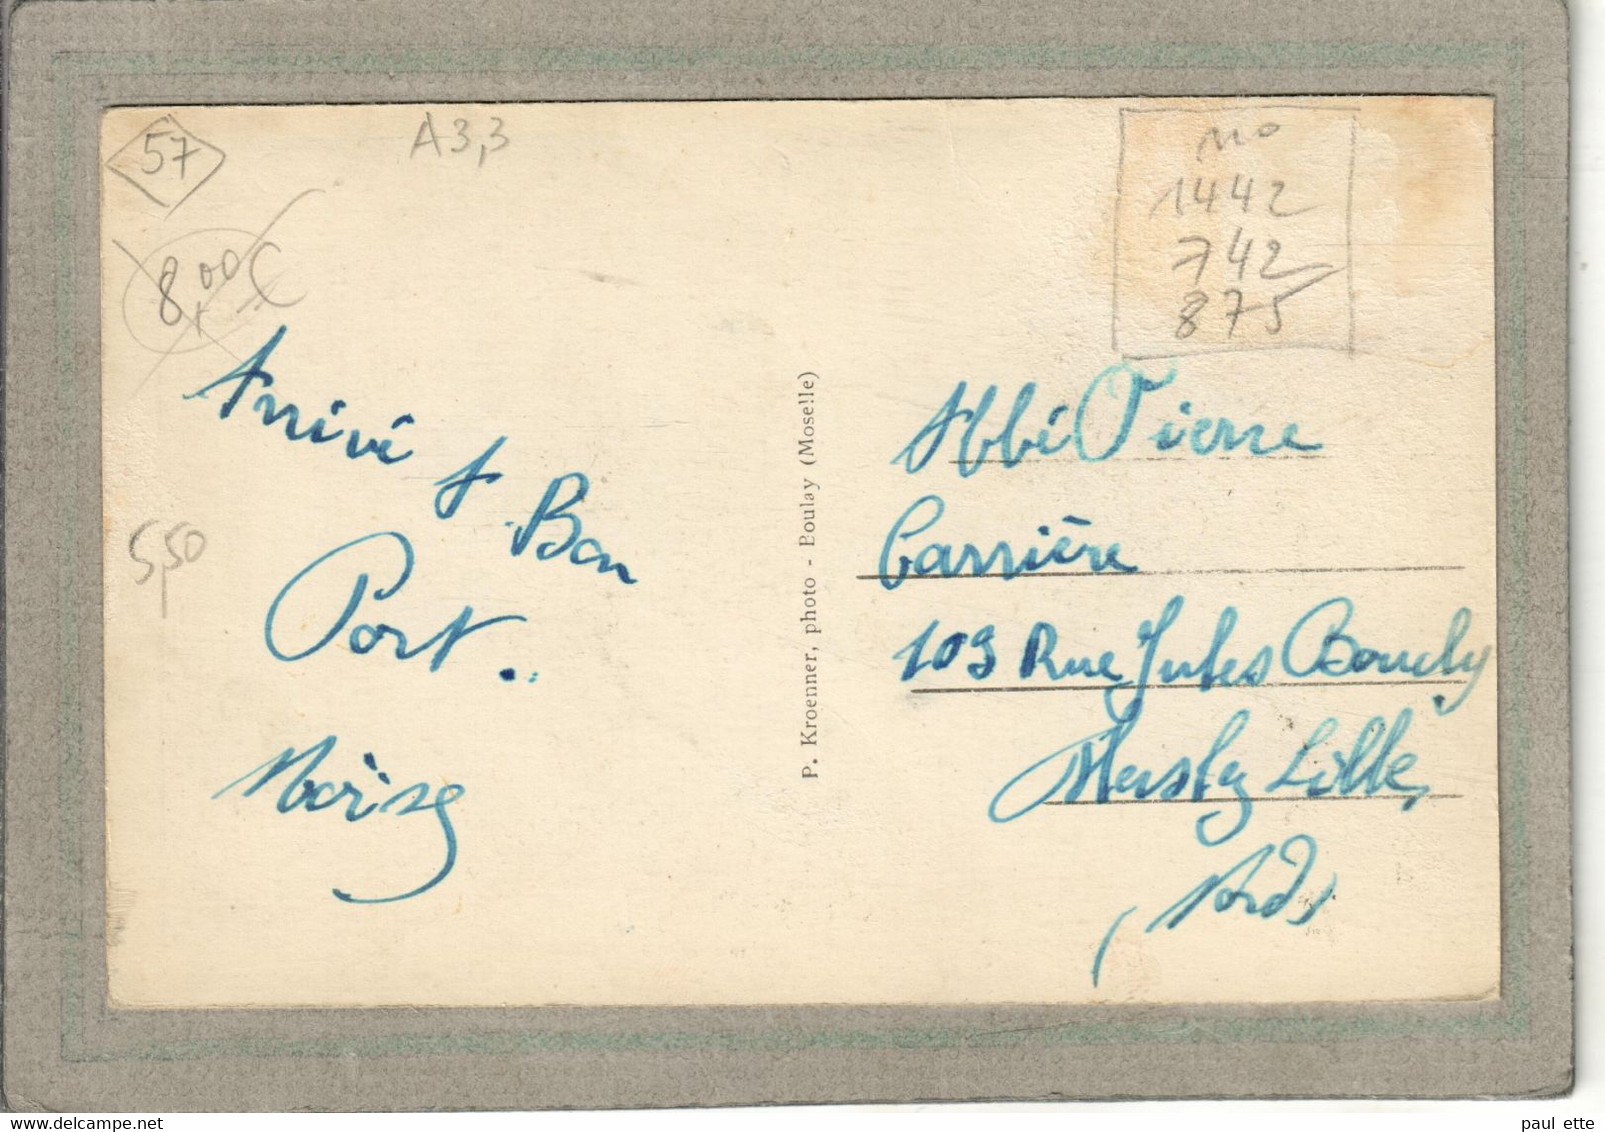 57
A3,3
8,00 €
5,50
Arrivé A Bon
Port.
Moïse
P. Kroenner, photo - Boulay (Moselle)
no
1442
742
875
Abbé Pierre
Carrière
109 Rue Jules
Lille,
(Nord)
delcampe.net
paul ette